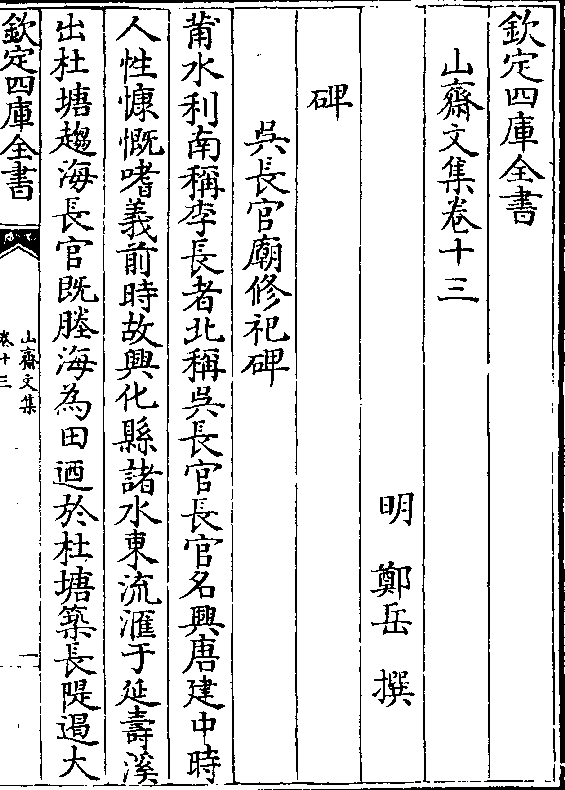 欽定四庫全書
山齋文集卷十三
明 鄭岳 撰
碑
吳長官廟修祀碑
莆水利南稱李長者北稱吳長官長官名興唐建中時
人性慷慨嗜義前時故興化縣諸水東流滙于延壽溪
出杜塘趨海長官既塍海為田迺於杜塘築長隄遏大
欽定四庫全書
山齋文集
卷十三
一